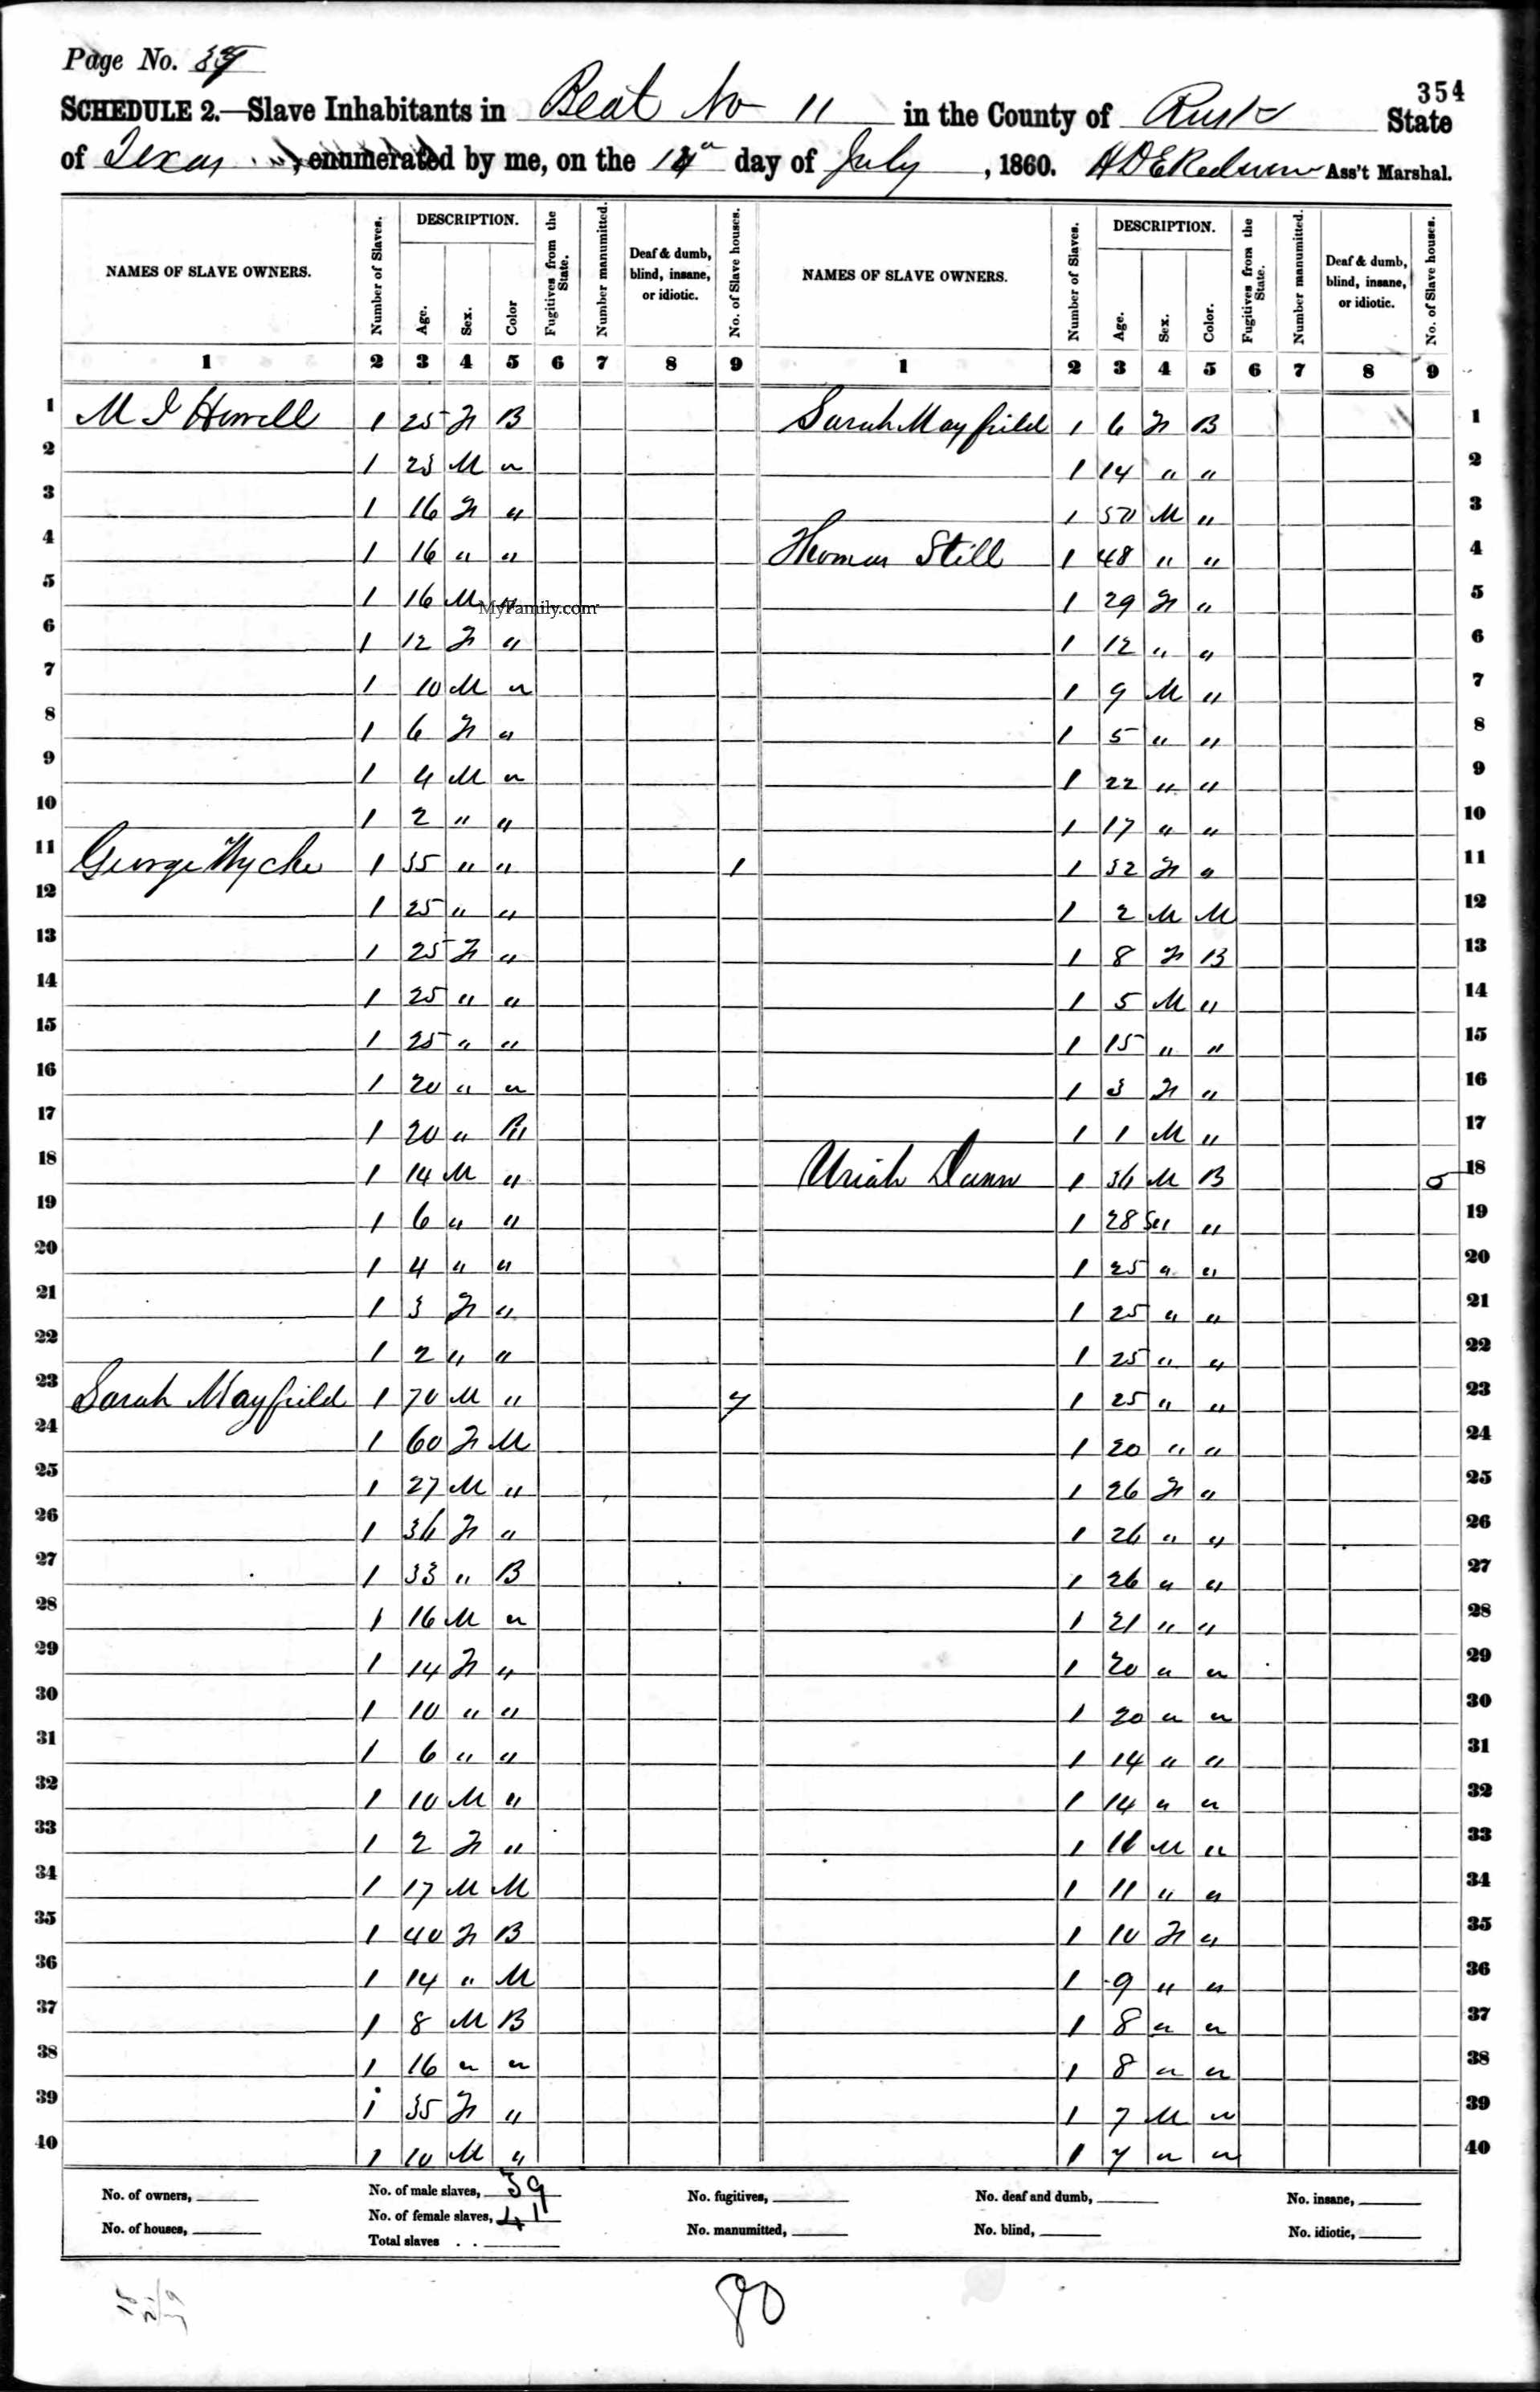 Page No.
SCHEDULE 2.—Slave Inhabitants in Beat No 11 in the County of Rusk State
354
of Texas, enumerated by me, on the day of July, 1860. Ass't Marshal.
NAMES OF SLAVE OWNERS. Number of Slaves. DESCRIPTION. Age. Sex. Color Fugitives from the State. Number manumitted. Deaf & dumb, blind, insane, or idiotic. No. of Slave houses. NAMES OF SLAVE OWNERS. Number of Slaves. DESCRIPTION. Age. Sex. Color. Fugitives from the State. Number manumitted. Deaf & dumb, blind, insane, or idiotic. No. of Slave houses.
1 2 3 4 5 6 7 8 9 1 2 3 4 5 6 7 8 9
1 M I Howell 1 25 F B Sarah Mayfield 1 6 F B 1
2 1 23 M " 1 14 " " 2
3 1 16 F " 1 50 M " 3
4 1 16 " " Thomas Still 1 48 " " 4
5 1 16 M " 1 29 F " 5
MyFamily.com
6 1 12 F " 1 12 " " 6
7 1 10 M " 1 9 M " 7
8 1 6 F " 1 5 " " 8
9 1 4 M " 1 22 " " 9
10 1 2 " " 1 17 " " 10
11 George Wyche 1 35 " " 1 1 32 F " 11
12 1 25 " " 1 2 M M 12
13 1 25 F " 1 8 F B 13
14 1 25 " " 1 5 M " 14
15 1 25 " " 1 15 " " 15
16 1 20 " " 1 3 F " 16
17 1 20 " 1 1 M " 17
18 1 14 M " Uriah Dunn 1 36 M B 18
19 1 6 " " 1 28 " 19
20 1 4 " " 1 25 " " 20
21 1 3 F " 1 25 " " 21
22 1 2 " " 1 25 " " 22
23 Sarah Mayfield 1 70 M " 7 1 25 " " 23
24 1 60 F M 1 20 " " 24
25 1 27 M " 1 26 F " 25
26 1 36 F " 1 26 " " 26
27 1 33 " B 1 26 " " 27
28 1 16 M " 1 21 " " 28
29 1 14 F " 1 20 " " 29
30 1 10 " " 1 20 " " 30
31 1 6 " " 1 14 " " 31
32 1 10 M " 1 14 " " 32
33 1 2 F " 1 11 M " 33
34 1 17 M M 1 11 " " 34
35 1 40 F B 1 10 F " 35
36 1 14 " M 1 9 " " 36
37 1 8 M B 1 8 " " 37
38 1 16 " " 1 8 " " 38
39 1 35 F " 1 7 M " 39
40 1 10 M " 1 7 " " 40
No. of owners, No. of male slaves, 39 No. fugitives, No. deaf and dumb, No. insane,
No. of houses, No. of female slaves, 41 No. manumitted, No. blind, No. idiotic,
Total slaves . .
80